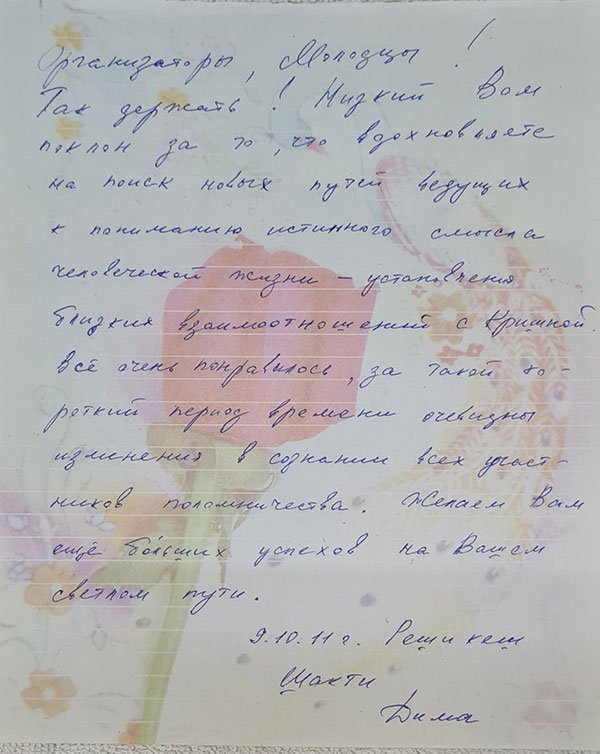 Организаторы, Молодцы!
Так держать! Низкий Вам
поклон за то, что вдохновляете
на поиск новых путей ведущих
к пониманию истинного смысла
человеческой жизни – установления
близких взаимоотношений с Кришной.
Всё очень понравилось, за такой ко-
роткий период времени очевидны
изменения в сознании всех участ-
ников поломничества. Желаем Вам
ещё бо́льших успехов на Вашем
светлом пути.
9.10.11 г. Решикеш
Шакти
Дима